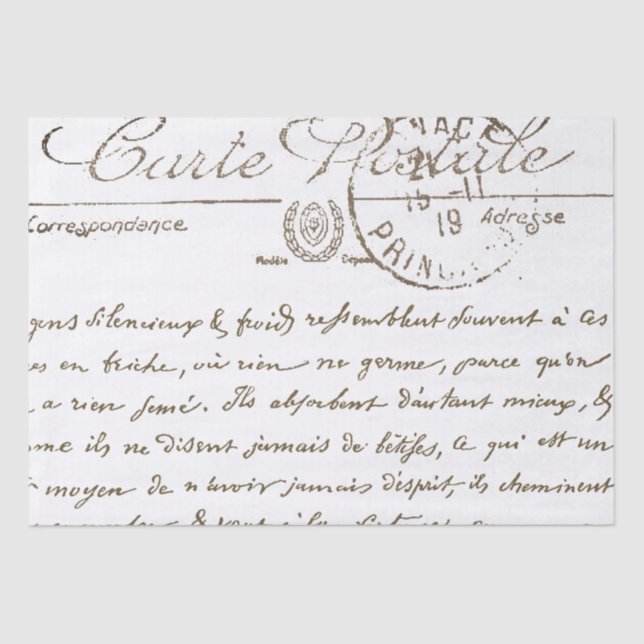 Carte Postale
MACA
15-11
19
PRINC
Correspondance
Adresse
Modèle Déposé
gens silencieux & froids ressemblent souvent à ces
es en friche, où rien ne germe, parce qu'on
a rien semé. Ils absorbent d'autant mieux, &
me ils ne disent jamais de bêtises, ce qui est un
moyen de n'avoir jamais d'esprit, ils cheminent
& vont à la